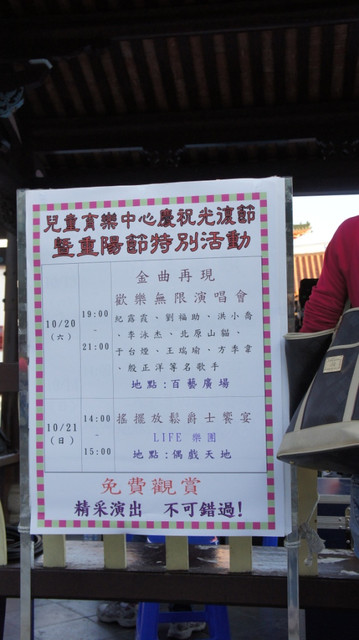 兒童育樂中心慶祝光復節
暨重陽節特別活動
10/20
(六)
19:00
-
21:00
金曲再現
歡樂無限演唱會
紀露霞、劉福助、洪小喬
、李泳杰、北原山貓、
于台煙、王瑞瑜、方季韋
、殷正洋等名歌手
地點:百藝廣場
10/21
(日)
14:00
-
15:00
搖擺放鬆爵士饗宴
LIFE 樂團
地點:偶戲天地
免費觀賞
精采演出 不可錯過!